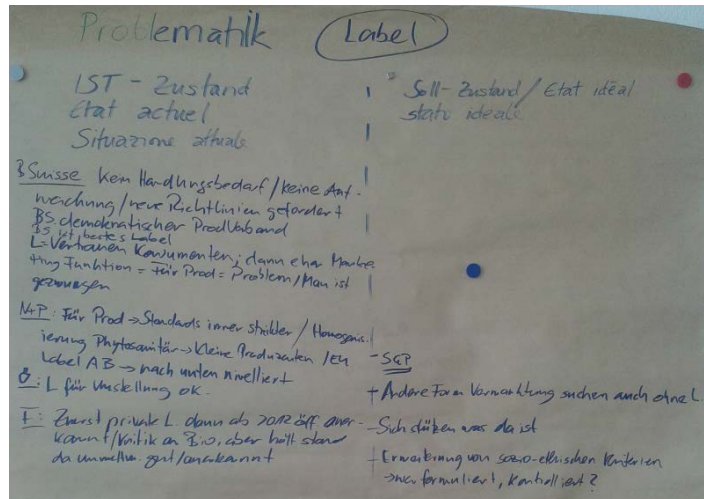 Problematik Label
IST - Zustand
Etat actuel
Situazione attuale
Soll - Zustand / Etat idéal
stato ideale
B Suisse Kein Handlungsbedarf / keine Auf-
weichung / neue Richtlinien gefordert
BS. demokratischer Prod Verband
BS ist bestes Label
L = Vertrauen Konsumenten; dann eher Marke
ting Funktion = Für Prod = Problem / Man ist
gezwungen
N+P: Für Prod → Standards immer strikter / Homogenis.
ierung Phytosanitär → Kleine Produzenten / EU
Label AB → nach unten nivelliert
Ö: L für Umstellung OK.
I: Zuerst private L. dann ab 2012 öff. aner-
kannt / Kritik an Bio, aber hält stand
da umwelt. gut / anerkannt
- S&P
+ Andere Form Vermarktung suchen auch ohne L
- Sich stützen was da ist
+ Erweiterung von sozio-ethischen Kriterien
→ nur formuliert, kontrolliert?